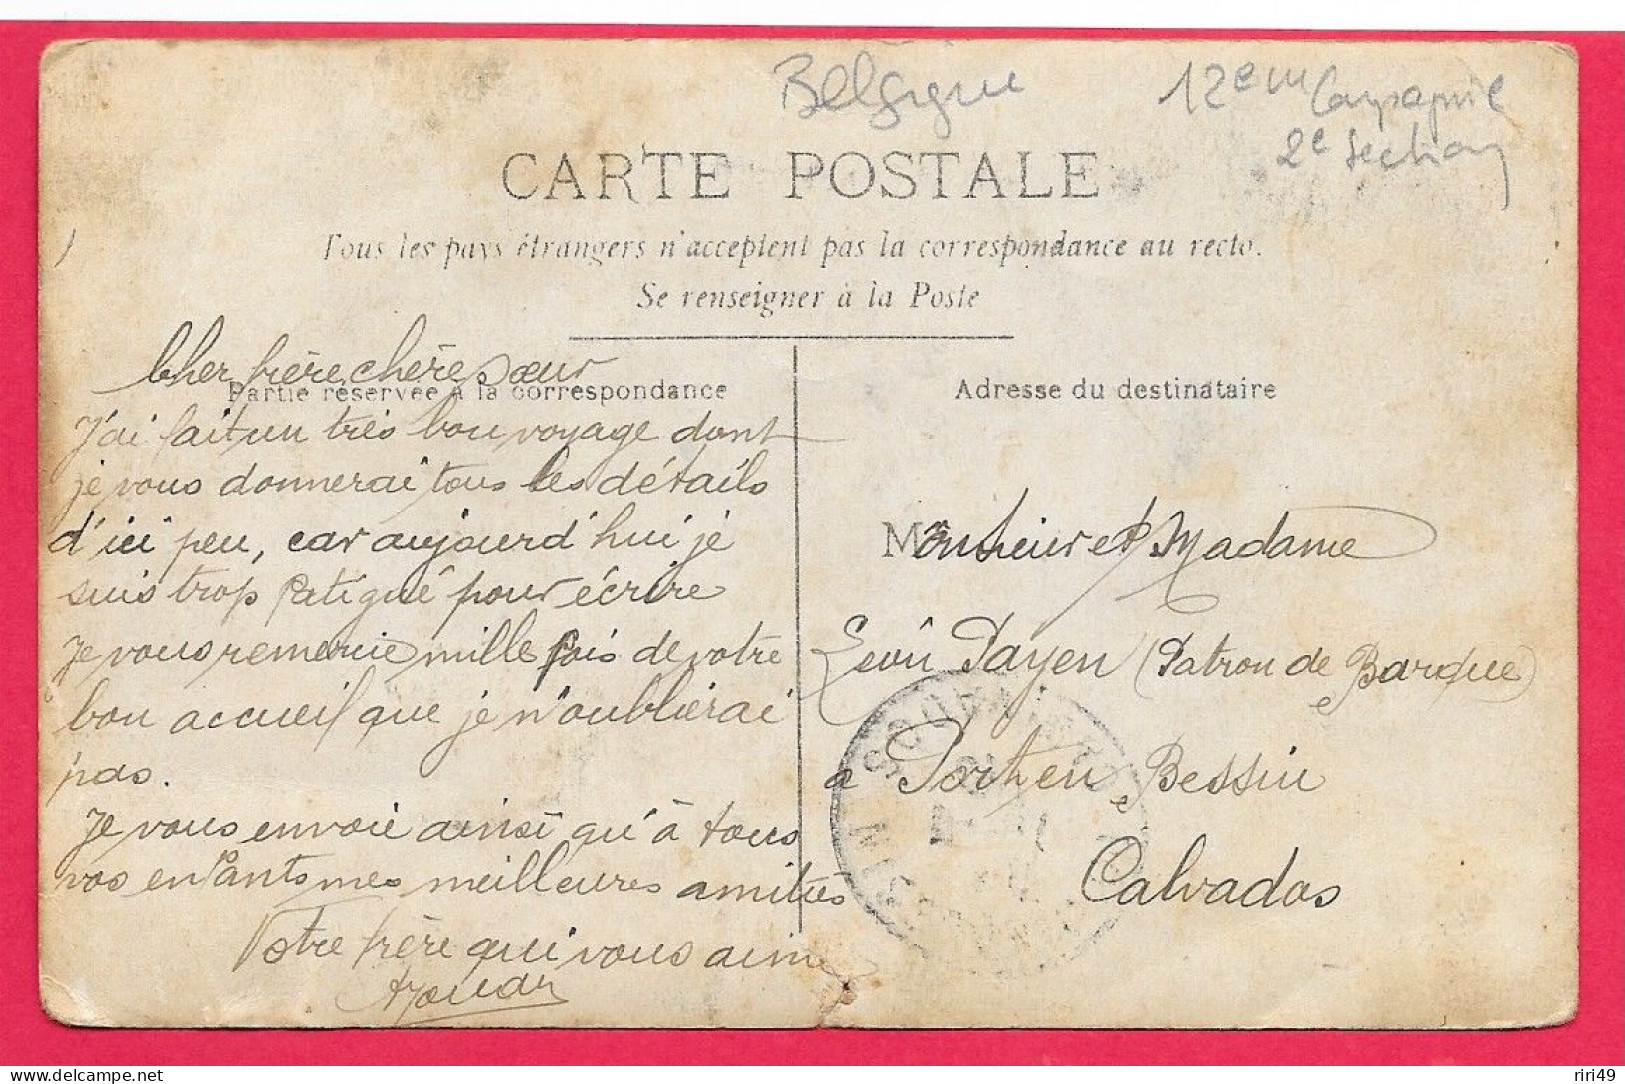 Belgique
12em Compagnie
2e Section
CARTE POSTALE
Tous les pays étrangers n'acceptent pas la correspondance au recto.
Se renseigner à la Poste
Cher frère, chère sœur
Partie réservée à la correspondance
J'ai fait un très bon voyage dont
je vous donnerai tous les détails
d'ici peu, car aujourd'hui je
suis trop fatigué pour écrire
Je vous remercie mille fois de votre
bon accueil que je n'oublierai
pas.
Je vous envoie ainsi qu'à tous
vos enfants mes meilleures amitiés
Votre frère qui vous aime
Adresse du destinataire
Monsieur et Madame
Léon Payen (Patron de Barque)
a Port en Bessin
Calvados
riri49